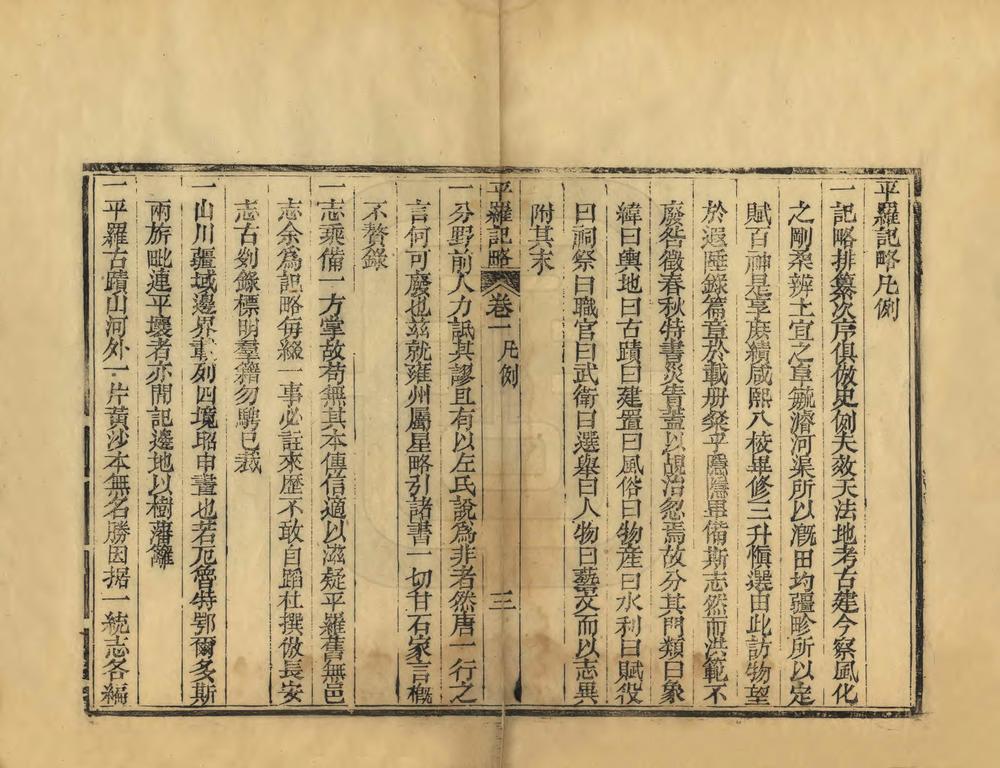 平羅記略凡例
一記略排纂次序俱倣史例夫效天法地考古建今察風化
之剛柔辨土宜之阜毓濬河渠所以漑田均疆畛所以定
賦百神是享庶績咸熙八校畢修三升愼選由此訪物望
於遐陲錄篇章於載册粲乎隱隱畢備斯志然而洪範不
廢咎徵春秋特書災眚蓋以覘治忽焉故分其門類曰象
緯曰輿地曰古蹟曰建置曰風俗曰物産曰水利曰賦役
曰祠祭曰職官曰武衛曰選舉曰人物曰藝文而以志異
附其末
平羅記略 卷一 凡例 三
一分野前人力詆其謬且有以左氏說爲非者然唐一行之
言何可廢也茲就雍州屬星略引諸書一切甘石家言槪
不贅錄
一志乘備一方掌故苟無其本傳信適以滋疑平羅舊無邑
志余爲記略每綴一事必註來歷不敢自蹈杜撰倣長安
志古剡錄標明羣籍勿騁已裁
一山川疆域邊界臚列四境昭申畫也若厄魯特鄂爾多斯
兩旂毗連平壤者亦間記邊地以樹藩籬
一平羅古蹟山河外一片黃沙本無名勝因据一統志各編